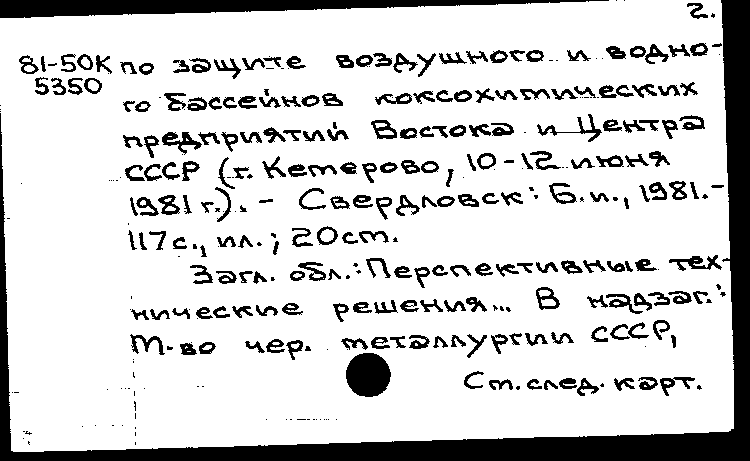 2.
81-50К по защите воздушного и водно-
5350 го бассейнов коксохимических
предприятий Востока и Центра
СССР (г. Кемерово, 10-12 июня
1981 г.). - Свердловск: Б.и., 1981.-
117с., ил.; 20см.
Загл. обл.: Перспективные тех-
нические решения... В надзаг.:
М-во чер. металлургии СССР,
См. след. карт.